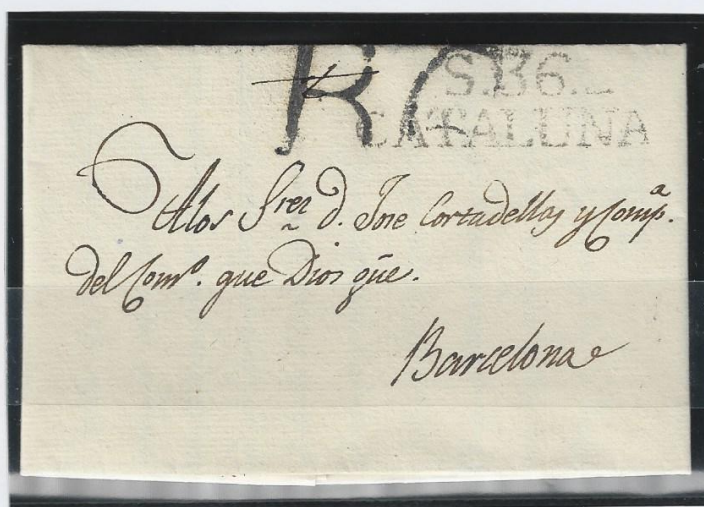 R S.B6.L
CATALUNA
A los S.res d. Jose Cortadellas y Comp.a
del Com.o que Dios güe.
Barcelona